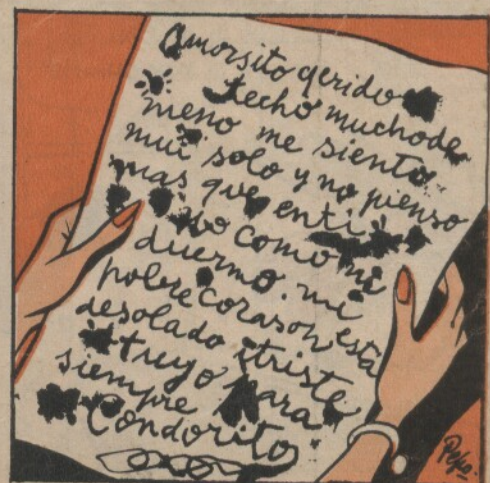 Amorsito qerido
techo muchode
meno me siento
mui solo y no pienso
mas que enti
No como ni
duermo. mi
pobre corason está
desolado itriste
tuyo para
siempre
Condorito
Pepo.